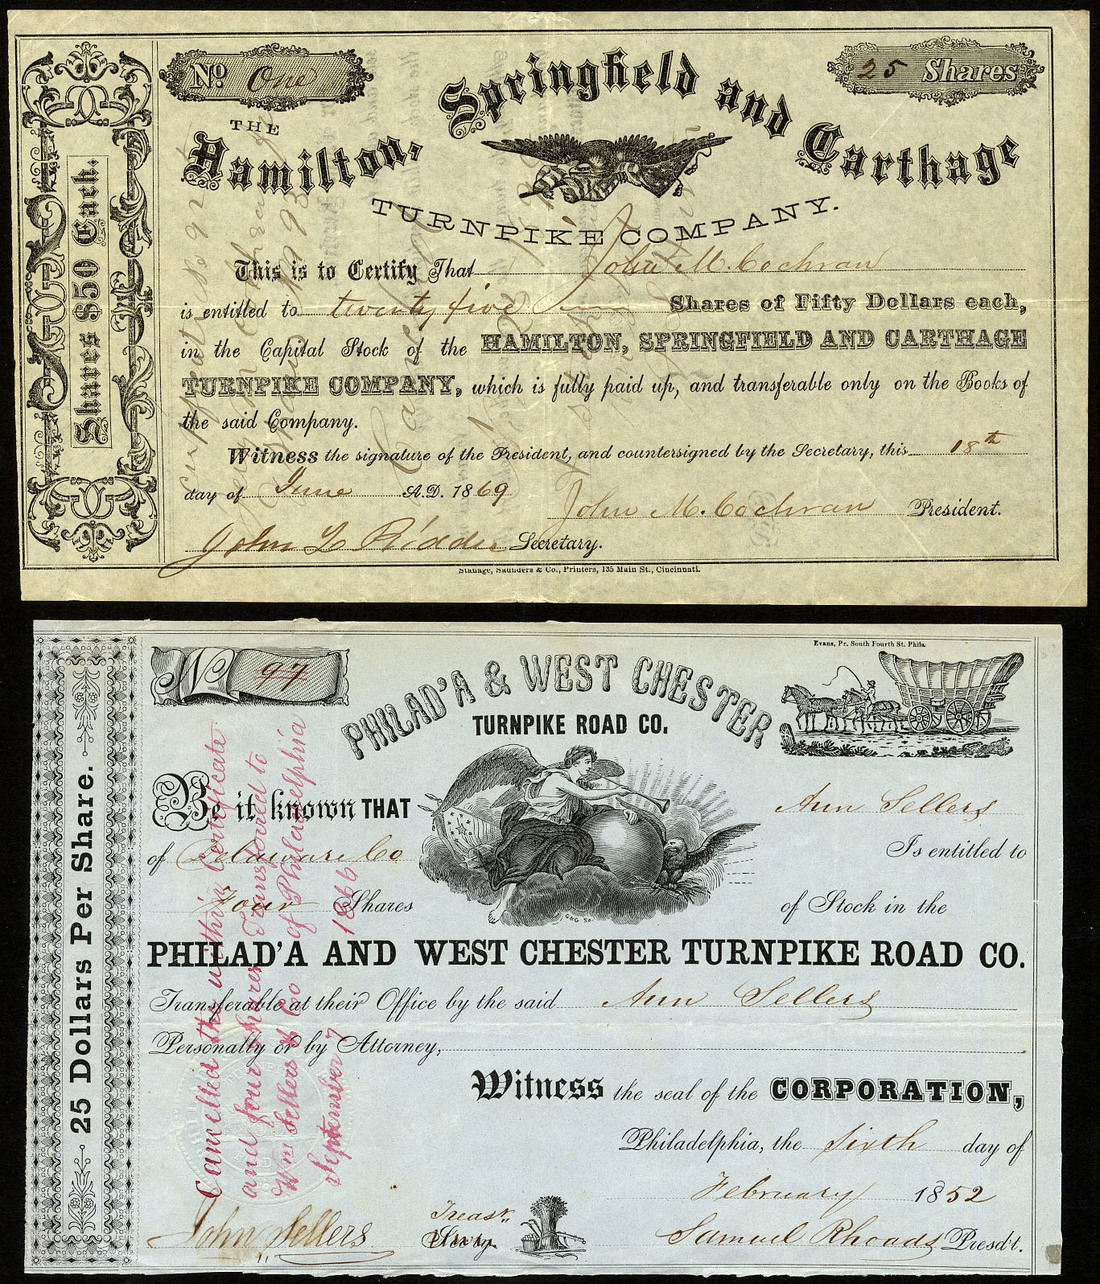 No. One
25 Shares
THE
Hamilton, Springfield and Carthage
TURNPIKE COMPANY.
Shares $50 Each.
This is to Certify That John M. Cochran
is entitled to twenty five Shares of Fifty Dollars each,
in the Capital Stock of the HAMILTON, SPRINGFIELD AND CARTHAGE
TURNPIKE COMPANY, which is fully paid up, and transferable only on the Books of
the said Company.
Witness the signature of the President, and countersigned by the Secretary, this 18th
day of June A.D. 1869
John M. Cochran President.
John L Ridder Secretary.
Stanage, Saunders & Co., Printers, 135 Main St., Cincinnati.
Evans, Pr. South Fourth St. Phila.
No 97
PHILAD'A & WEST CHESTER
TURNPIKE ROAD CO.
25 Dollars Per Share.
Be it known THAT Ann Sellers
of Delaware Co Is entitled to
Four Shares of Stock in the
PHILAD'A AND WEST CHESTER TURNPIKE ROAD CO.
Transferable at their Office by the said Ann Sellers
Personally or by Attorney,
Witness the seal of the CORPORATION,
Philadelphia, the Sixth day of
February 1852
John Sellers Treas. Samuel Rhoads Presd't.
Cancelled the within Certificate
and four shares Transferred to
Wm Sellers & Co of Philadelphia
September 7 1866